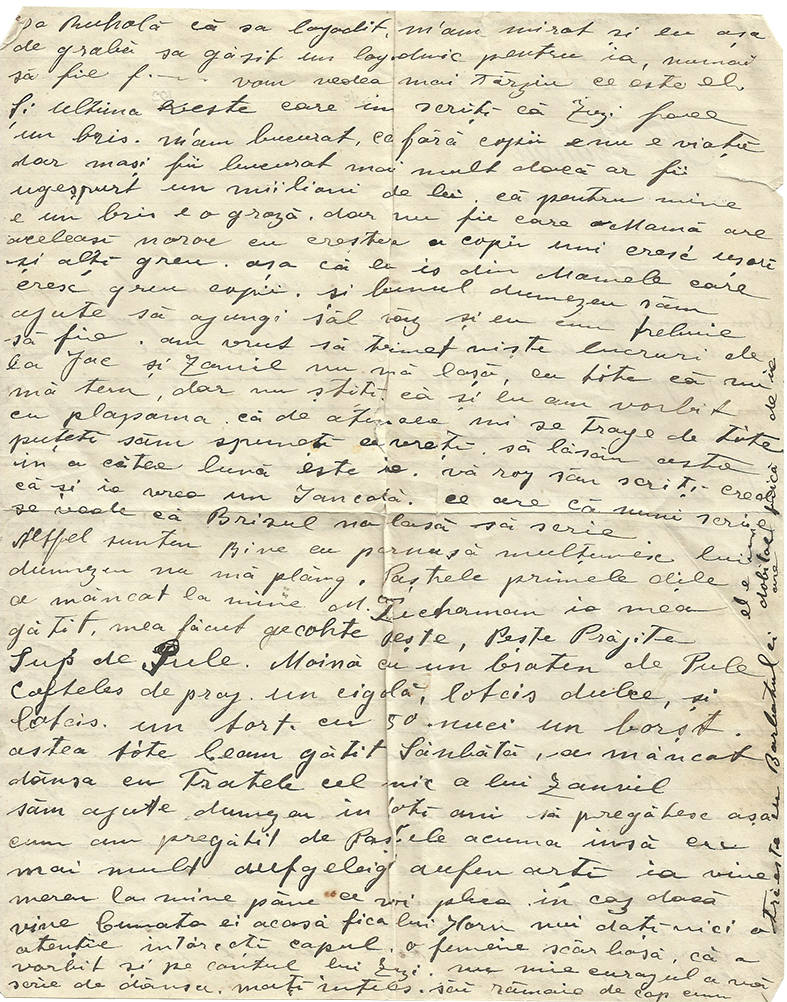 Ruhală că sa logodit, m'am mirat si eu asa
de grabă sa găsit un logodnic pentru ia, numai
să fie f.---. vom vedea mai târziu ce este el.
Si ultima veste care im scriți că Zuzi face
un bris. m'am bucurat, că fără copii e nu e viață
dar mași fii bucurat mai mult dacă ar fii
un miilion de lei. că pentru mine
e un bris e o groză. dar nu fie care Mamă are
aceleasi noroc cu crestea a copii uni cresc ușori
si alti greu. asa că eu is din Mamele care
cresc greu copii. si bunul dumnezeu săm
ajute să ajungi săl văz și eu cum trebuie
să fie. am vrut să trimet niște lucruri de
la Jac si Zamil nu mă lasă, cu tôte că nu
mă tem, dar nu stiti că si eu am vorbit
cu plapama. că de atuncea, mi se trage de tôte
puteti săm spuneti ce vreti. să lăsăm astea
in a câtea lună este ie. vă rog săm scriti, cred
că si ia vrea un Iancală. ce are că numi scrie
se vede că Brisul na lasă să scrie.
Altfel suntem Bine cu parnusă multumesc lui
dumnezeu nu mă plâng. Paștrele primele dile
a mâncat la mine M. Zucherman ia mea
gătit, mea făcut gecohte peste, Peste Prăjite
Sup de Pule. Moină cu un braten de Pule
Cofteles de praj. un cigolă, lotcis dulce, si
lotcis. un tort. cu 50 nuci un borșt.
astea tôte leam gătit Sânbătă, a mâncat
dânsa cu Fratele cel mic a lui Zamvil
săm ajute dumnezeu in toti ani să pregătesc asa
cum am pregătit de Paștele acuma insă cu
mai mult aufgeleigt aufen arti ia vine
mereu la mine pâne ce voi pleca. in caz dacă
vine Cumata ei acasă fica lui Horn nui dati nici o
atenție intoreti capul. o femeie scârbosă, că a
vorbit si pe contul lui Zuzi. nu mie curagul a vă
scrie de dânsa. mați ințeles. săi rămâie de cap cum
trieste cu Barbatul ei dobitoc frică de ie
el e
are